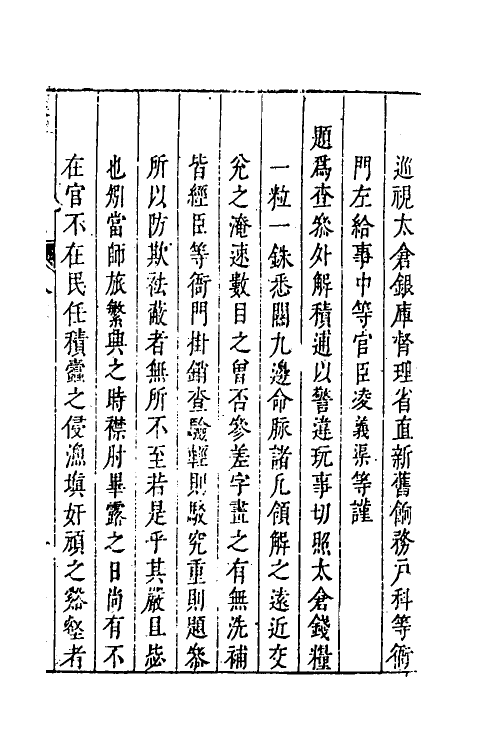 巡視太倉銀庫督理省直新舊餉務戸科等衙
門左給事中等官臣凌義渠等謹
題爲查叅外解積逋以警違玩事切照太倉錢糧
一粒一銖悉關九邊命脉諸凡領解之遠近交
兊之淹速數目之曾否參差字畫之有無洗補
皆經臣等衙門掛銷查驗輕則駁究重則題叅
所以防欺祛蔽者無所不至若是乎其嚴且毖
也矧當師旅繁興之時襟肘畢露之日尚有不
在官不在民任積蠹之侵漁塡奸頑之谿壑者